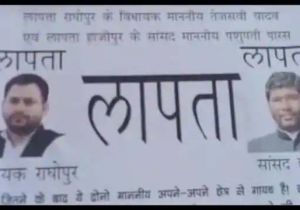 लापता राघोपुर के विधायक माननीय तेजसवी यादव
एवं लापता हाजीपुर के सांसद माननीय पशुपती पारस
लापता
लापता
लापता
यक राघोपुर
सांसद ह
जितने के बाद ये दोनो माननीय अपने-अपने क्षेत्र से गायब है।